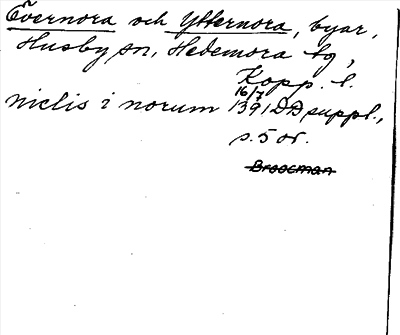 Övernora och Ytternora, byar,
Husby sn, Hedemora tg,
Kopp. l.
niclis i norum 16/7 1391 DD suppl.,
s. 5 or.
Broocman